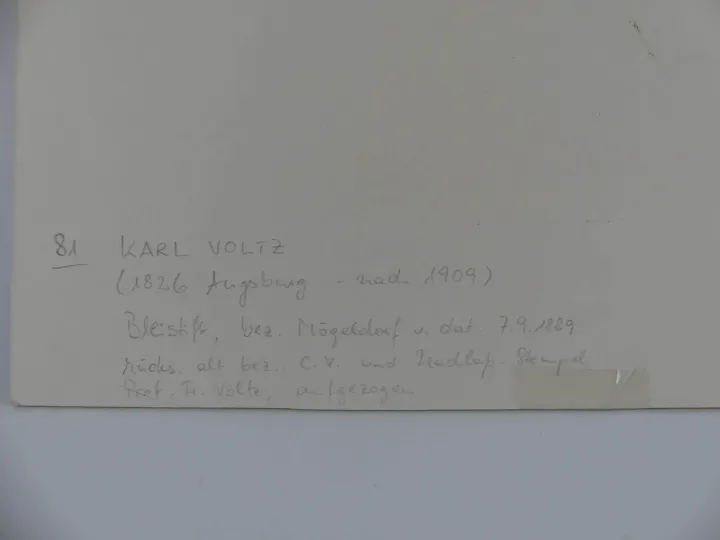 81 KARL VOLTZ
(1826 Augsburg - nach 1909)
Bleistift, bez. Mögeldorf u. dat. 7.9.1889
rücks. alt bez. C.V. und Nachlaß-Stempel
Prof. Fr. Voltz, aufgezogen